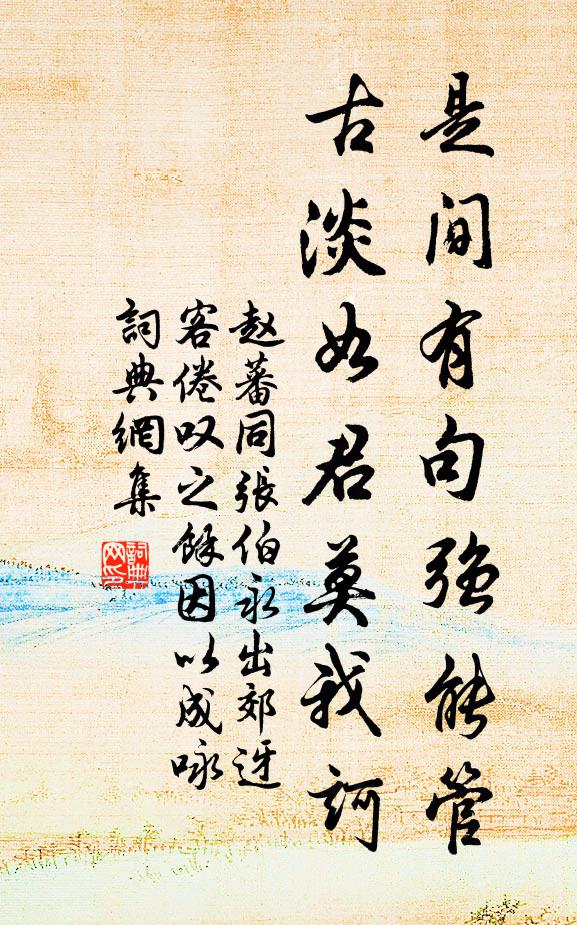 是间有句强能管
古淡如君莫我訶
赵蕃同張伯永出郊迓
客倦叹之餘因以成咏
詞典網集
詞典
网印